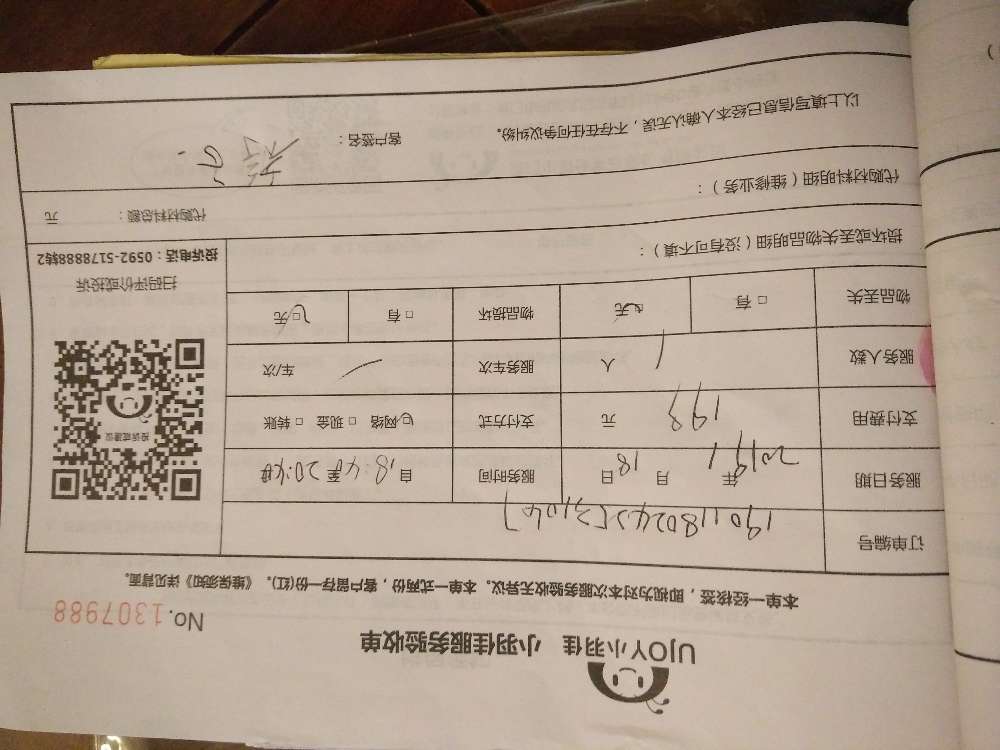 UJOY小羽佳 小羽佳服务验收单
No.1307988
本单一经核签,即视为对本次服务验收无异议。本单一式两份,客户留存一份(红)。《维保须知》详见背面。
订单编号
服务日期 2019年1月18日 服务时间 自18:40至20:40
支付费用 198元 支付方式 网络 □现金 □转账
服务人数 1人 服务车次 车/次
物品丢失 □有 □无 物品损坏 □有 □无
损坏或丢失物品明细(没有可不填):
代购材料明细(维修业务):
代购材料总额: 元
以上填写信息已经本人确认无误,不存在任何争议纠纷。
客户签名:
投诉或建议
扫码评价或投诉
投诉电话:0592-5178888转2